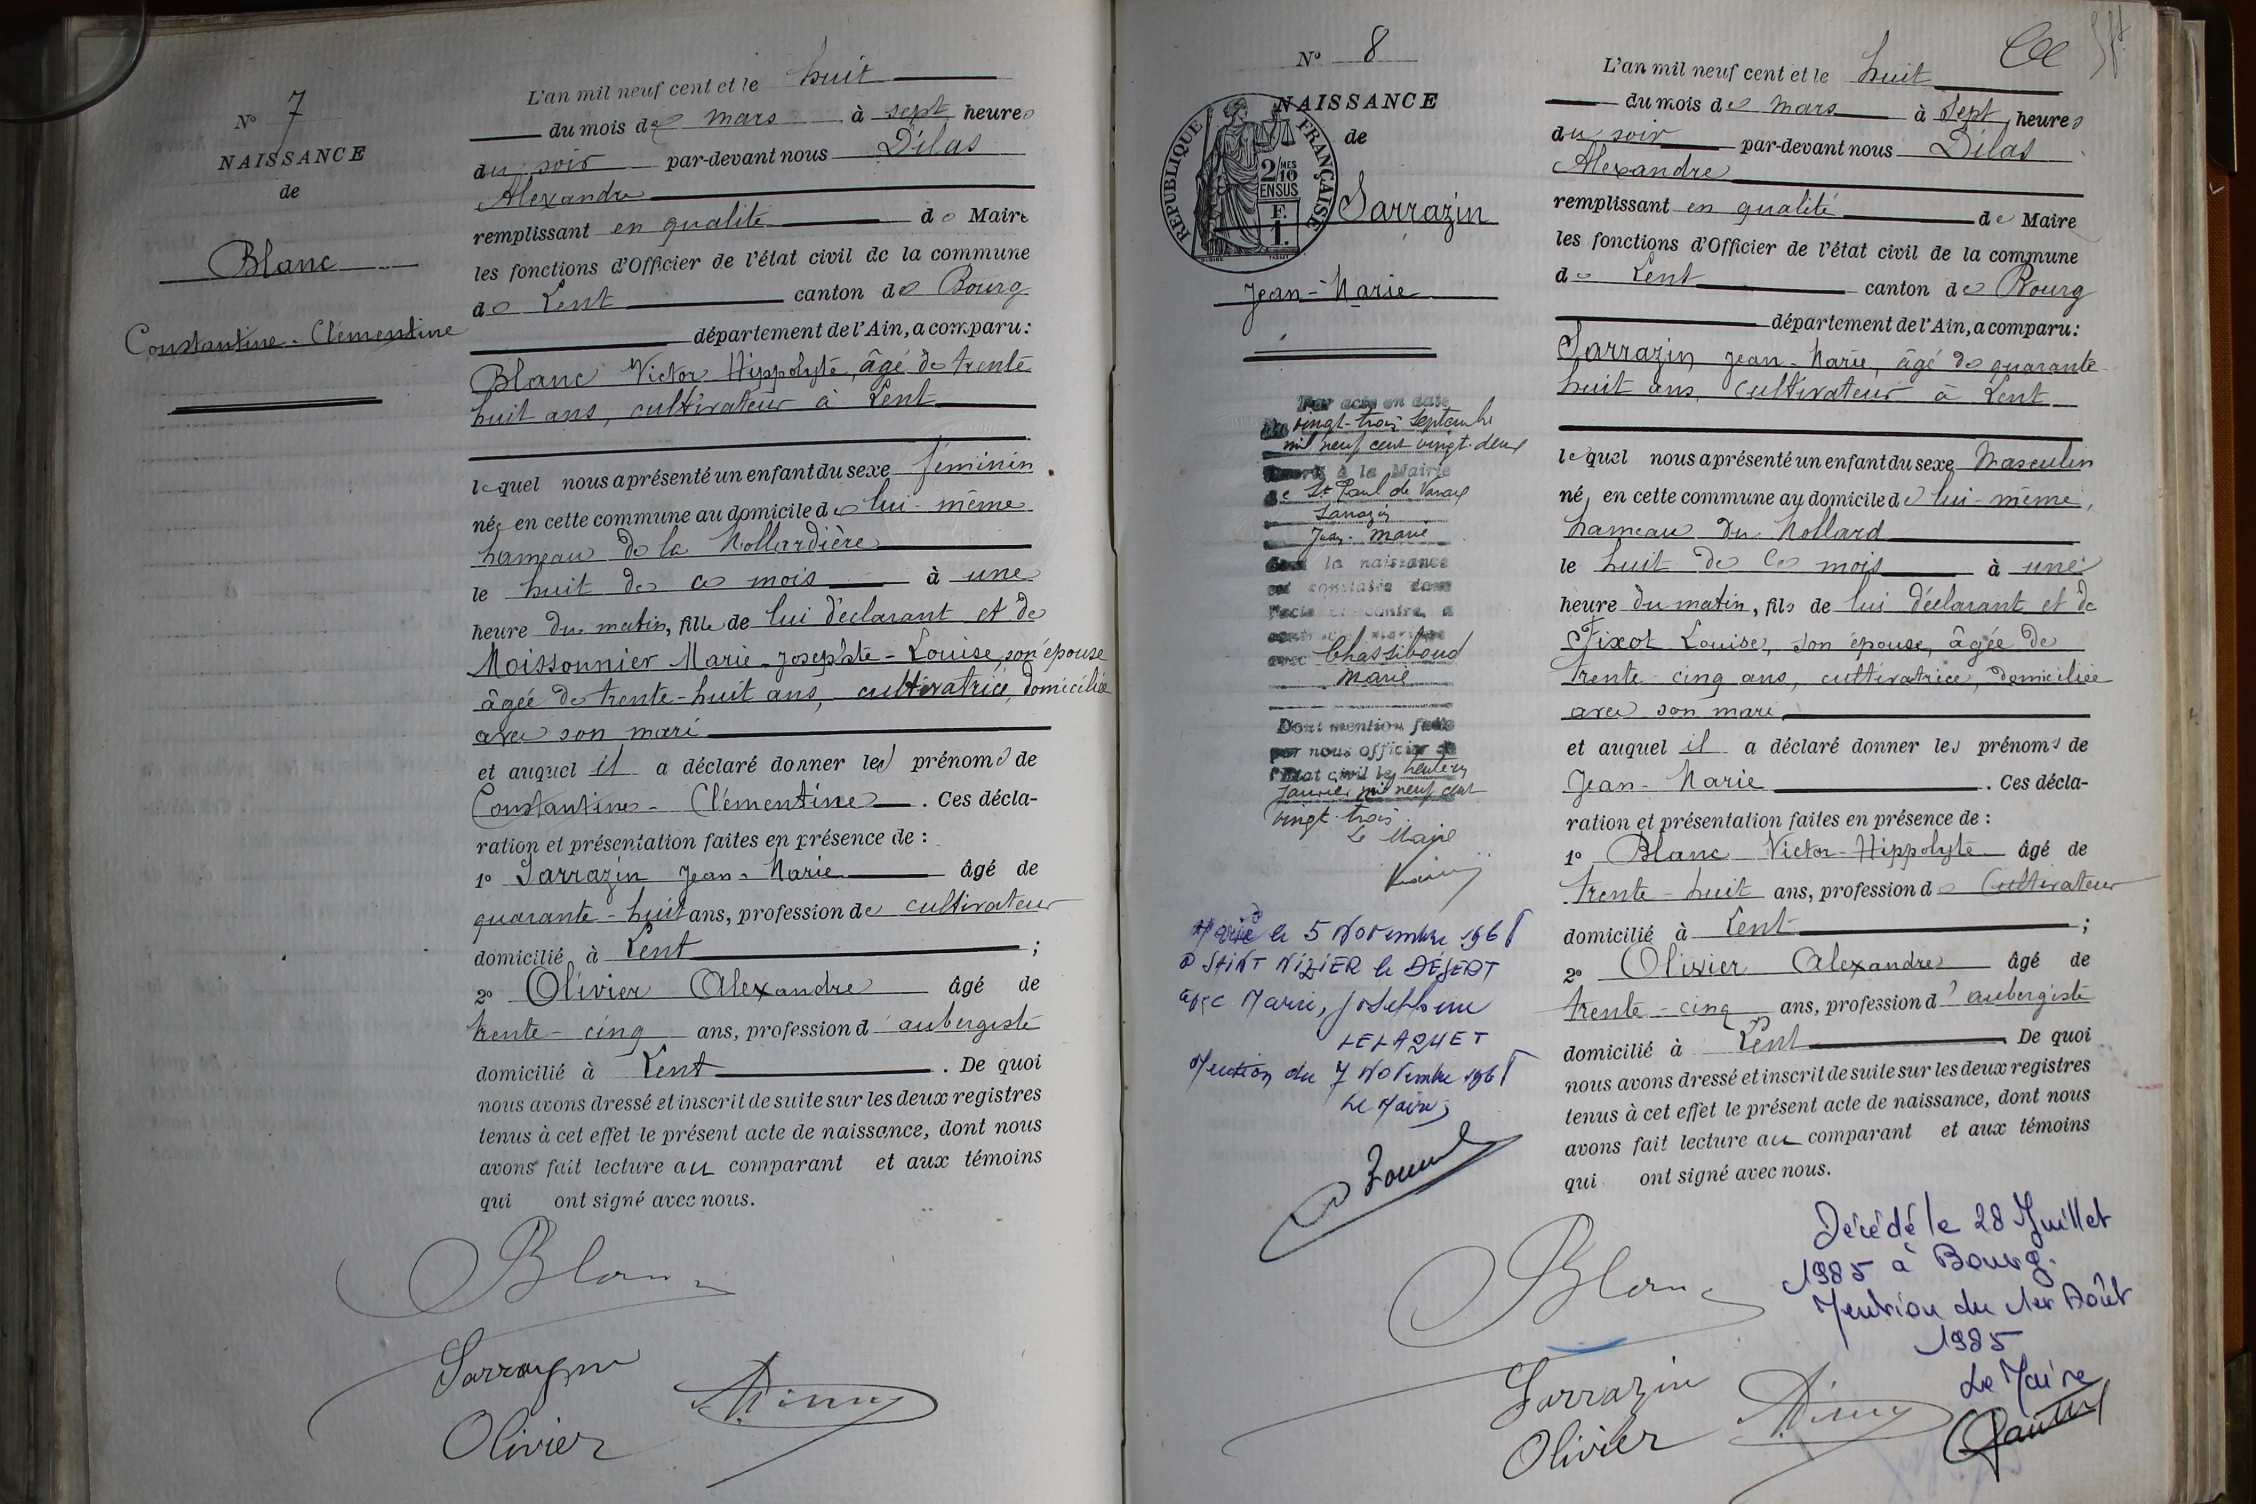 N° 7
NAISSANCE
de
Blanc
Constantine-Clémentine
L'an mil neuf cent et le huit
du mois de mars à sept heures
du soir par-devant nous Dilas
Alexandre
remplissant en qualité de Maire
les fonctions d'Officier de l'état civil de la commune
de Lent canton de Bourg
département de l'Ain, a comparu:
Blanc Victor Hippolyte, âgé de trente
huit ans, cultivateur à Lent
lequel nous a présenté un enfant du sexe féminin
née en cette commune au domicile de lui-même
hameau de la Mollardière
le huit de ce mois à une
heure du matin, fille de lui déclarant et de
Moissonnier Marie-Josephte-Louise, son épouse
âgée de trente-huit ans, cultivatrice, domiciliée
avec son mari
et auquel il a déclaré donner les prénoms de
Constantine-Clémentine. Ces décla-
ration et présentation faites en présence de :
1° Sarrazin Jean-Marie âgé de
quarante-huit ans, profession de cultivateur
domicilié à Lent ;
2° Olivier Alexandre âgé de
trente-cinq ans, profession d'aubergiste
domicilié à Lent. De quoi
nous avons dressé et inscrit de suite sur les deux registres
tenus à cet effet le présent acte de naissance, dont nous
avons fait lecture au comparant et aux témoins
qui ont signé avec nous.
Blanc
Sarrazin
Olivier
N° 8
NAISSANCE
de
REPUBLIQUE FRANÇAISE
2/10 EN SUS
F. 1.
Sarrazin
Jean-Marie
Par acte en date
du vingt-trois Septembre
mil neuf cent vingt-deux
à la Mairie
de St Paul de Varax
Sarrazin
Jean-Marie
dont la naissance
est constatée dans
l'acte ci-contre, a
contracté mariage
avec Chassiboud
Marie
Dont mention faite
par nous officier de
l'Etat civil le
Janvier mil neuf cent
vingt-trois
Le Maire
Marié le 5 Novembre 196
à SAINT NIZIER le DÉSERT
avec Marie, Joséphine
LELAQUET
Mention du 7 Novembre 196
Le Maire,
L'an mil neuf cent et le huit
du mois de mars à Sept heures
du soir par-devant nous Dilas
Alexandre
remplissant en qualité de Maire
les fonctions d'Officier de l'état civil de la commune
de Lent canton de Bourg
département de l'Ain, a comparu:
Sarrazin Jean-Marie, âgé de quarante-
huit ans, cultivateur à Lent
lequel nous a présenté un enfant du sexe Masculin
né, en cette commune au domicile de lui-même,
hameau du Mollard
le huit de ce mois à une
heure du matin, fils de lui déclarant et de
Fixot Louise, son épouse, âgée de
trente-cinq ans, cultivatrice, domiciliée
avec son mari
et auquel il a déclaré donner les prénoms de
Jean-Marie. Ces décla-
ration et présentation faites en présence de :
1° Blanc Victor-Hippolyte âgé de
trente-huit ans, profession de Cultivateur
domicilié à Lent ;
2° Olivier Alexandre âgé de
trente-cinq ans, profession d'aubergiste
domicilié à Lent De quoi
nous avons dressé et inscrit de suite sur les deux registres
tenus à cet effet le présent acte de naissance, dont nous
avons fait lecture au comparant et aux témoins
qui ont signé avec nous.
Décédé le 28 Juillet
1985 à Bourg.
Mention du 1er Août
1985
Le Maire
Blanc
Sarrazin
Olivier